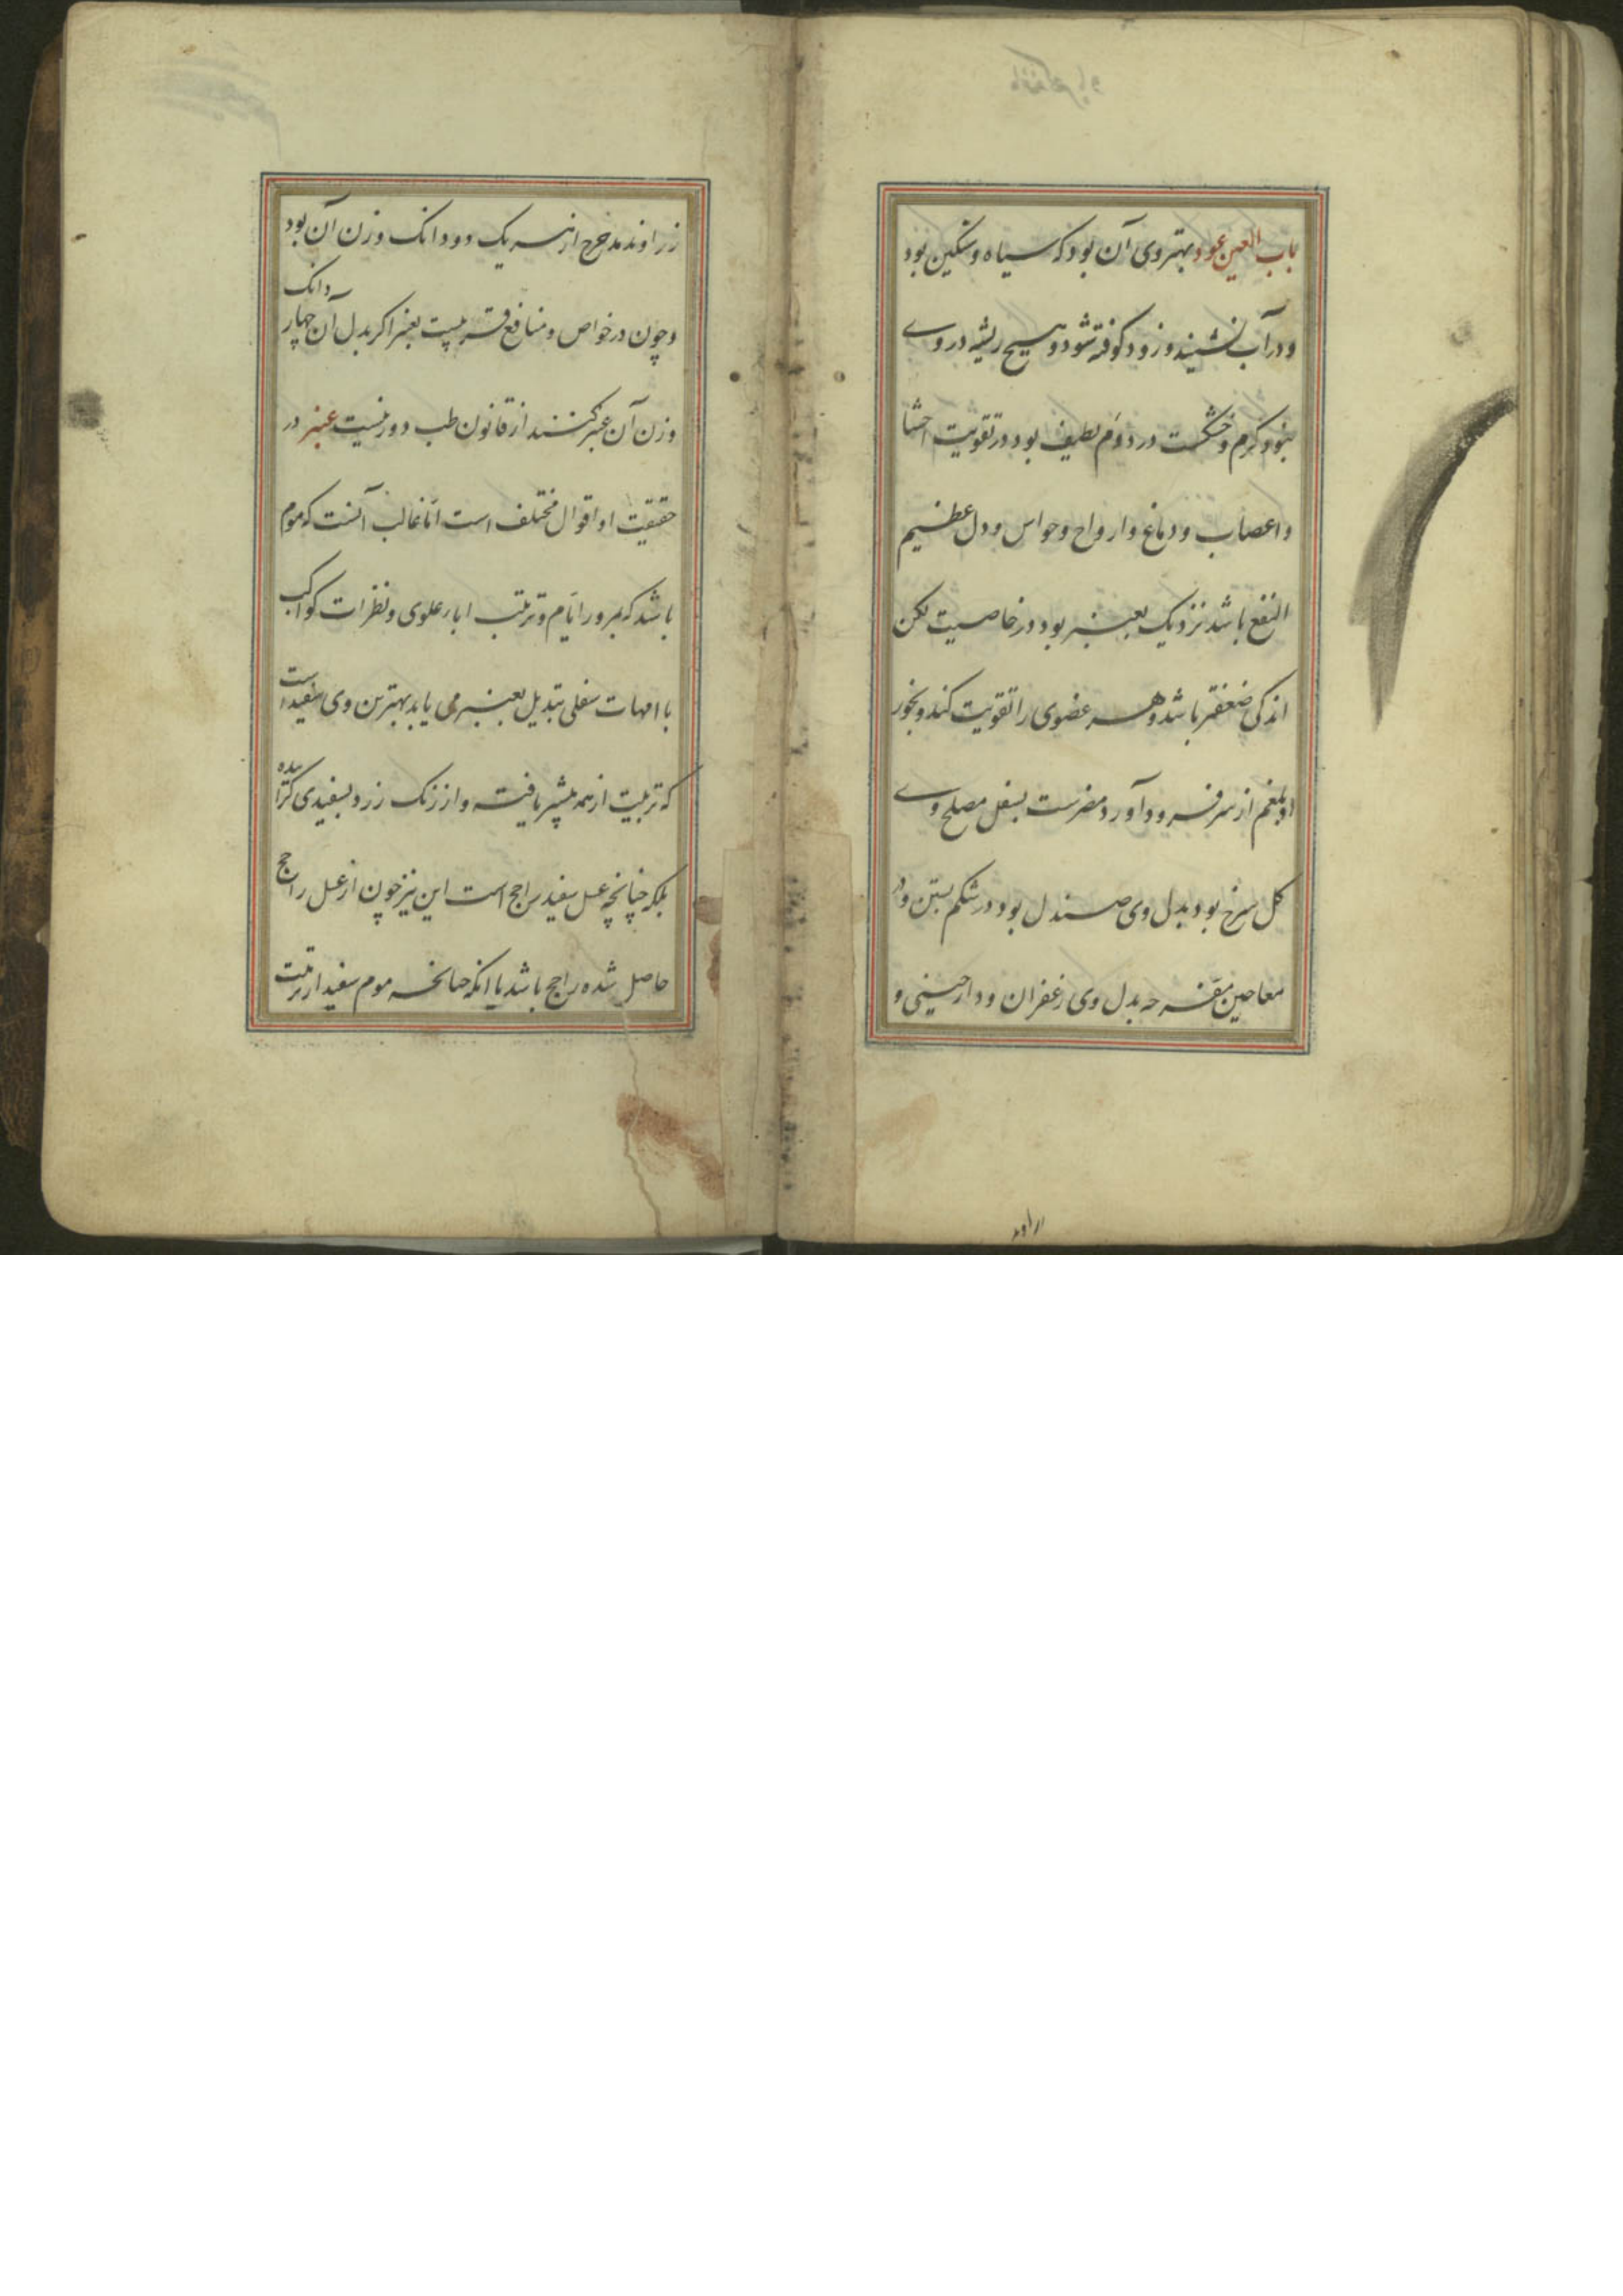 باب العین عود بهتر وی آن بود که سیاه و سنگین بود
و در آب نشیند و زود کوفته شود و هیچ ریشه در وی
نبود گرم و خشکست در دوّم لطیف بود در تقویت احشا
و اعصاب و دماغ و ارواح و حواس و دل عظیم
النفع باشد نزدیک بعنبر بود در خاصیت لکن
اندکی ضعفتر باشد و هر عضوی را تقویت کند و بخور
او بلغم از سر فرود آورد مضرست بسفل مصلح وی
گل سرخ بود بدل وی صندل بود در شکم بستن و در
معاجین مفرّحه بدل وی زعفران و دارچینی و
زراوند مدحرج از هر یک دو دانک وزن آن بود
و چون در خواص و منافع قریبست بعنبر اگر بدل آن چهار دانک
وزن آن عنبر کنند از قانون طب دور نیست عنبر در
حقیقت او اقوال مختلف است امّا غالب آنست که موم
باشد که بمرور ایّام و تربیت اباء علوی و نظرات کواکب
با امهات سفلی تبدیل بعنبر می یابد بهترین وی سفید است
که تربیت از همه بیشتر یافته و از رنک زرد بسفیدی گراییده
بلکه چنانچه عسل سفید راجح است این نیز چون از عسل راجح
حاصل شده راجح باشد یا انکه چنانچه موم سفید از تربیت